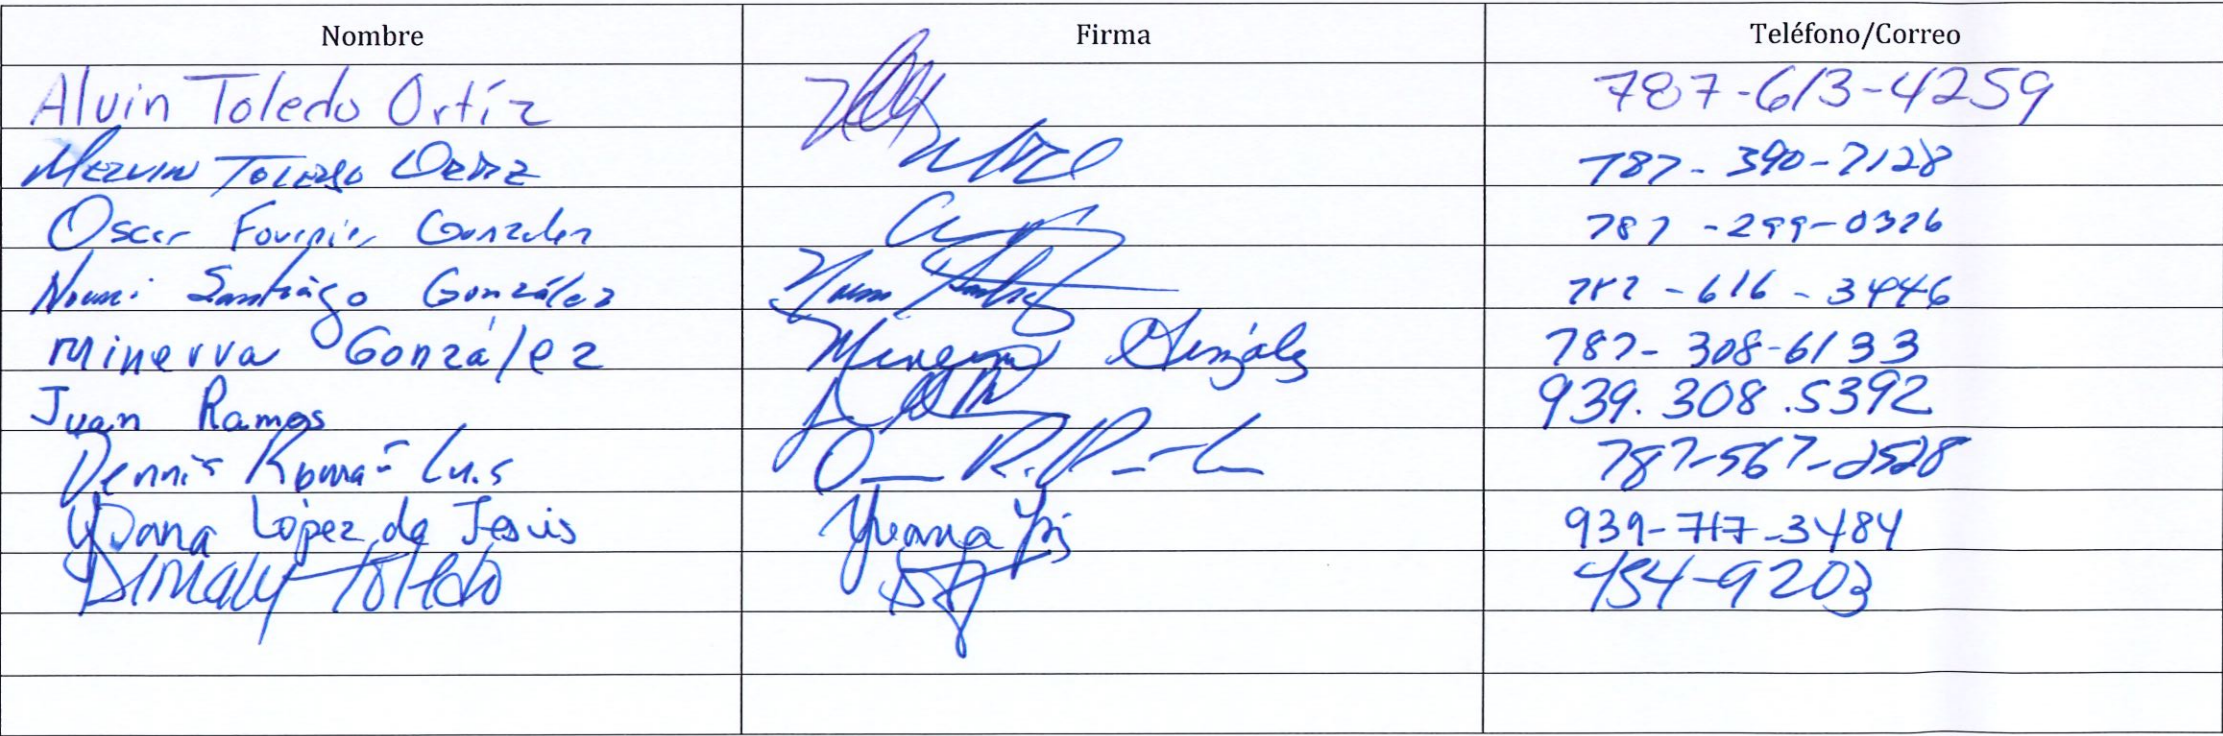 Nombre Firma Teléfono/Correo
Alvin Toledo Ortíz 787-613-4259
Mervin Toledo Ortiz 787-390-7128
Oscar Fournier Gonzalez 787-299-0326
Noemi Santiago González 787-616-3446
Minerva González Minerva González 787-308-6133
Juan Ramos 939.308.5392
Dennis Román Luis 787-567-2528
López de Jesús 939-717-3484
Toledo 454-9203